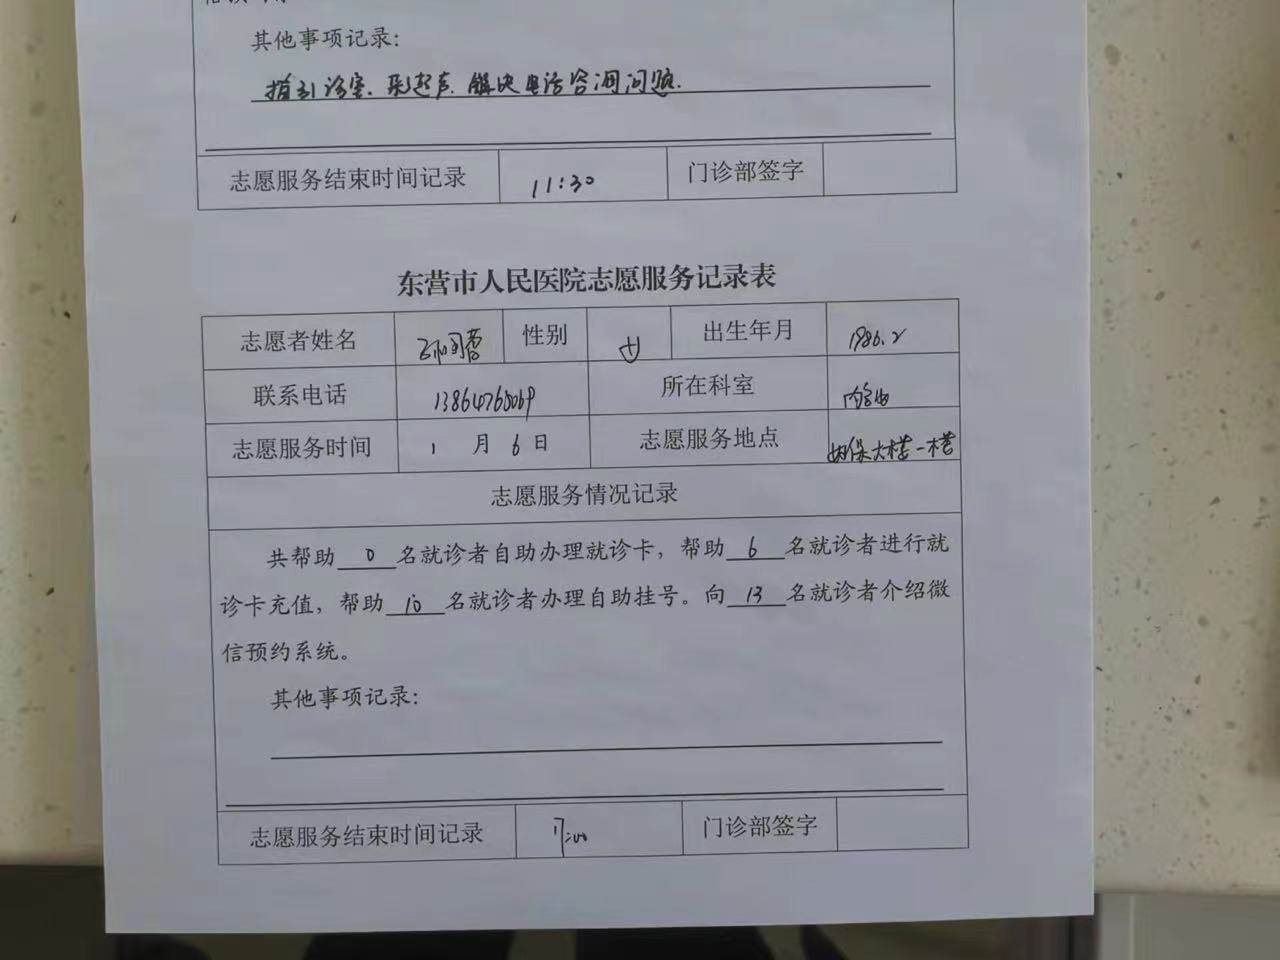 其他事项记录：
指引诊室、彩超声、解决电话咨询问题.
志愿服务结束时间记录 11:30 门诊部签字
东营市人民医院志愿服务记录表
志愿者姓名 性别 女 出生年月 1986.2
联系电话 13864768069 所在科室
志愿服务时间 1 月 6 日 志愿服务地点 妇保大楼一楼
志愿服务情况记录
共帮助 0 名就诊者自助办理就诊卡，帮助 6 名就诊者进行就
诊卡充值，帮助 10 名就诊者办理自助挂号。向 13 名就诊者介绍微
信预约系统。
其他事项记录：
志愿服务结束时间记录 17:00 门诊部签字